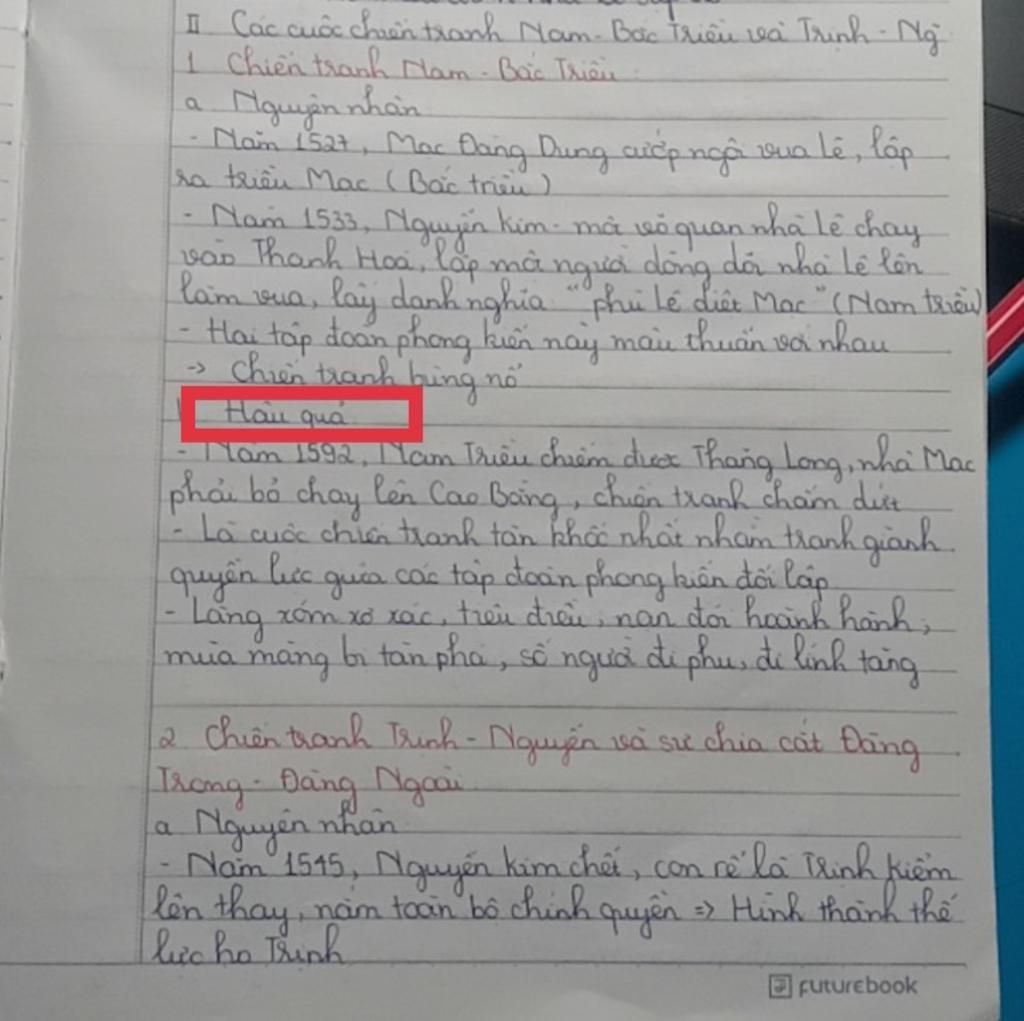 II Các cuộc chiến tranh Nam - Bắc Triều và Trịnh - Ng
1 Chiến tranh Nam - Bắc Triều
a Nguyên nhân
- Năm 1527, Mạc Đăng Dung cướp ngôi vua Lê, lập
ra triều Mạc (Bắc triều)
- Năm 1533, Nguyễn Kim - một võ quan nhà Lê chạy
vào Thanh Hoá, lập một người dòng dõi nhà Lê lên
làm vua, lấy danh nghĩa "phù Lê diệt Mạc" (Nam triều)
- Hai tập đoàn phong kiến này mâu thuẫn với nhau
-> Chiến tranh bùng nổ
Hậu quả
- Năm 1592, Nam Triều chiếm được Thăng Long, nhà Mạc
phải bỏ chạy lên Cao Bằng, chiến tranh chấm dứt
- Là cuộc chiến tranh tàn khốc nhất nhằm tranh giành
quyền lực giữa các tập đoàn phong kiến đối lập
- Làng xóm xơ xác, tiêu điều, nạn đói hoành hành,
mùa màng bị tàn phá, số người đi phu, đi lính tăng
2 Chiến tranh Trịnh - Nguyễn và sự chia cắt Đàng
Trong - Đàng Ngoài
a Nguyên nhân
- Năm 1545, Nguyễn Kim chết, con rể là Trịnh Kiểm
lên thay, nắm toàn bộ chính quyền => Hình thành thế
lực họ Trịnh
FUTUREBOOK